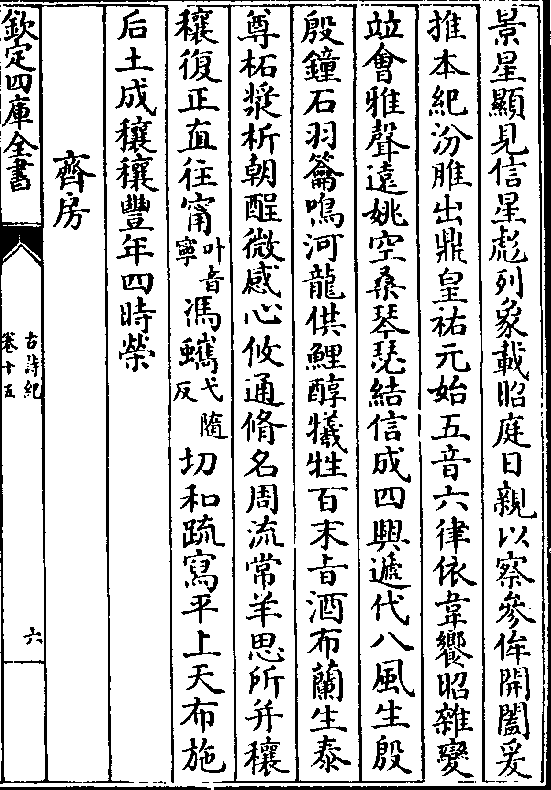 景星顯見信星彪列象載昭庭日親以察參侔開闔爰
推本紀汾脽出鼎皇祐元始五音六律依韋饗昭雜變
竝會雅聲遠姚空桑琴瑟結信成四興遞代八風生殷
殷鐘石羽籥鳴河龍供鯉醇犧牲百末旨酒布蘭生泰
尊柘漿析朝酲微感心攸通脩名周流常羊思所幷穰
穰復正直往甯叶音寧馮蠵弋隨反切和疏寫平上天布施
后土成穰穰豐年四時榮
齊房
欽定四庫全書
古詩紀
卷十五
六